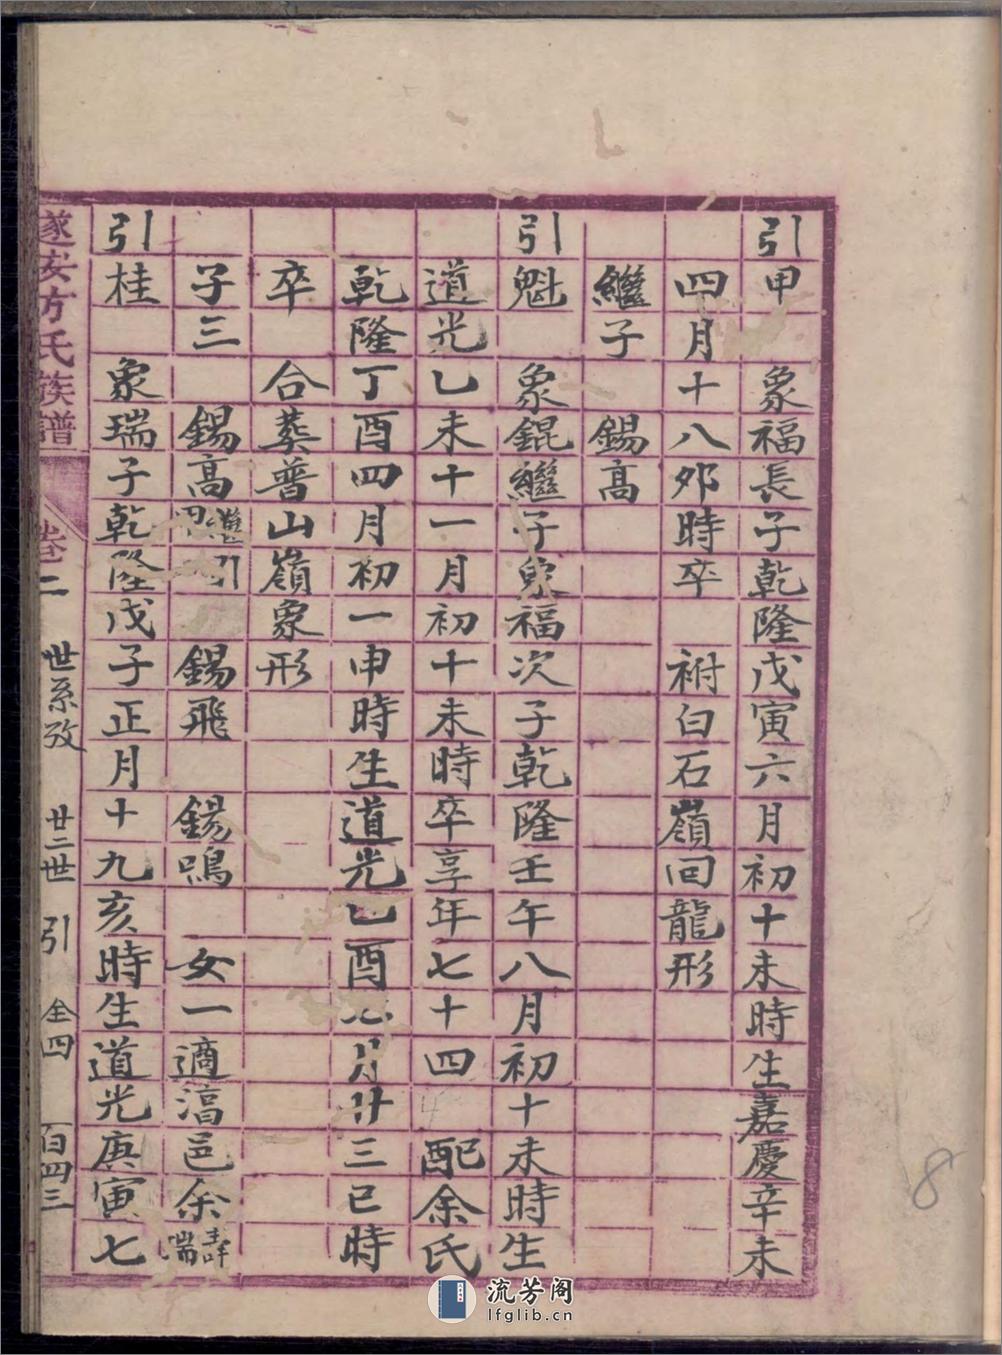 引甲 象福長子乾隆戊寅六月初十未時生嘉慶辛未
四月十八卯時卒 祔白石嶺回龍形
繼子 錫高
引魁 象錕繼子象福次子乾隆壬午八月初十未時生
道光乙未十一月初十未時卒享年七十四 配余氏
乾隆丁酉四月初一申時生道光己酉 月廿三巳時
卒 合葬普山嶺象形
子三 錫高 繼引甲 錫飛 錫鳴 女一適淳邑余
引桂 象瑞子乾隆戊子正月十九亥時生道光庚寅七
遂安方氏族譜 卷二 世系攷 廿二世 引 仝四 百四三
8
流芳阁
lfglib.cn